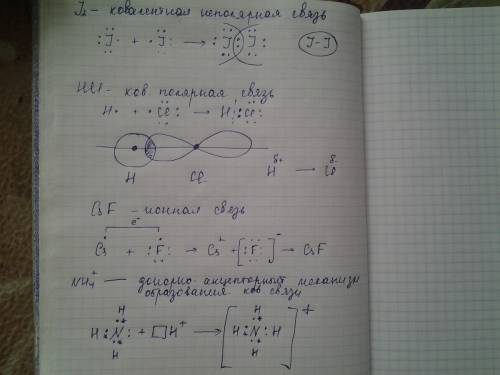 J₂ - ковалентная неполярная связь
:J· + ·J: → :J:J: J-J
HCl - ков. полярная связь
H· + ·Cl: → H:Cl:
H Cl Hδ+ → Clδ-
CsF - ионная связь
e⁻
Cs· + ·F: → Cs⁺ + [:F:]⁻ → CsF
NH₄⁺ — донорно акцепторный механизм
образования ков связи
H H
H:N: + □H⁺ → [H:N:H]⁺
H H